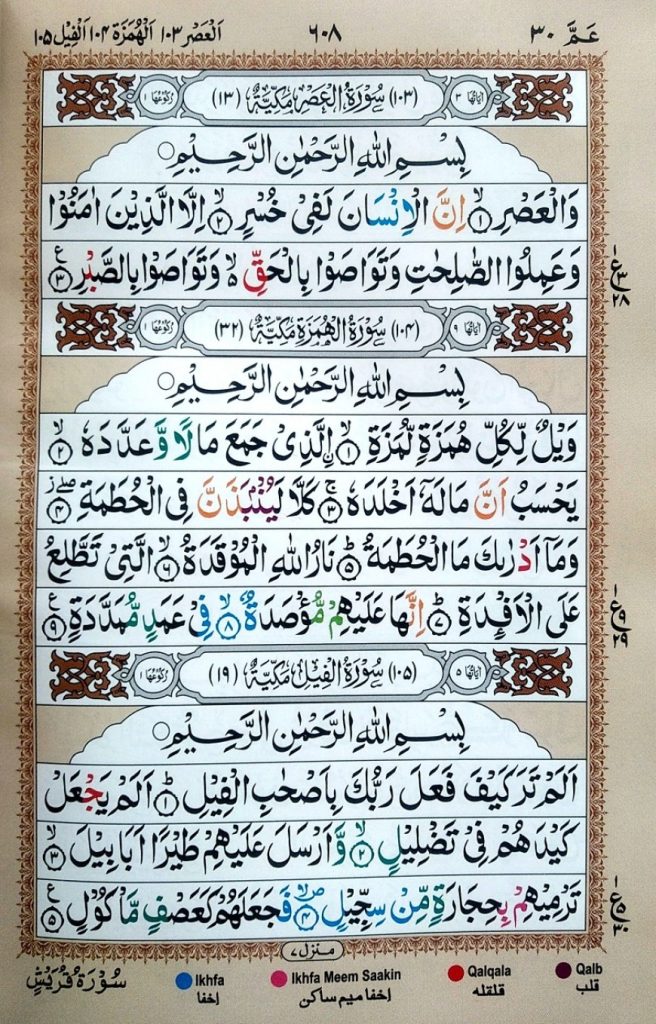 عَمَّ ٣٠ ٦٠٨ اَلْعَصْر ١٠٣ اَلْهُمَزَة ١٠٤ اَلْفِيْل ١٠٥
اٰيَاتُهَا ٣ (١٠٣) سُوْرَةُ الْعَصْرِ مَكِّيَّةٌ (١٣) رُكُوْعُهَا ١
بِسْمِ اللهِ الرَّحْمٰنِ الرَّحِيْمِ
وَالْعَصْرِ ۙ‏﴿١﴾ اِنَّ الْاِنْسَانَ لَفِىْ خُسْرٍ ۙ‏﴿٢﴾ اِلَّا الَّذِيْنَ اٰمَنُوْا
وَعَمِلُوا الصّٰلِحٰتِ وَتَوَاصَوْا بِالْحَقِّ ۙ۬ وَتَوَاصَوْا بِالصَّبْرِ ﴿٣﴾ ع
ع ٣ ٢٨
اٰيَاتُهَا ٩ (١٠٤) سُوْرَةُ الْهُمَزَةِ مَكِّيَّةٌ (٣٢) رُكُوْعُهَا ١
بِسْمِ اللهِ الرَّحْمٰنِ الرَّحِيْمِ
وَيْلٌ لِّكُلِّ هُمَزَةٍ لُّمَزَةِ ۙ‏﴿١﴾ اۨلَّذِىْ جَمَعَ مَالًا وَّعَدَّدَهٗ ۙ‏﴿٢﴾
يَحْسَبُ اَنَّ مَالَهٗۤ اَخْلَدَهٗ ۚ‏﴿٣﴾ كَلَّا لَيُنْۢبَذَنَّ فِى الْحُطَمَةِ ۖ‏﴿٤﴾
وَمَاۤ اَدْرٰىكَ مَا الْحُطَمَةُ ؕ‏﴿٥﴾ نَارُ اللهِ الْمُوْقَدَةُ ۙ‏﴿٦﴾ الَّتِىْ تَطَّلِعُ
عَلَى الْاَفْـِٕدَةِ ؕ‏﴿٧﴾ اِنَّهَا عَلَيْهِمْ مُّؤْصَدَةٌ ۙ‏﴿٨﴾ فِىْ عَمَدٍ مُّمَدَّدَةٍ ﴿٩﴾ ع
ع ٩ ٢٩
اٰيَاتُهَا ٥ (١٠٥) سُوْرَةُ الْفِيْلِ مَكِّيَّةٌ (١٩) رُكُوْعُهَا ١
بِسْمِ اللهِ الرَّحْمٰنِ الرَّحِيْمِ
اَلَمْ تَرَ كَيْفَ فَعَلَ رَبُّكَ بِاَصْحٰبِ الْفِيْلِ ؕ‏﴿١﴾ اَلَمْ يَجْعَلْ
كَيْدَهُمْ فِىْ تَضْلِيْلٍ ۙ‏﴿٢﴾ وَّاَرْسَلَ عَلَيْهِمْ طَيْرًا اَبَابِيْلَ ۙ‏﴿٣﴾
تَرْمِيْهِمْ بِحِجَارَةٍ مِّنْ سِجِّيْلٍ ۙ‏﴿٤﴾ فَجَعَلَهُمْ كَعَصْفٍ مَّاْكُوْلٍ ﴿٥﴾ ع
ع ٥ ٣٠
منزل ٧
سُوْرَةُ قُرَيْشٍ Ikhfa Ikhfa Meem Saakin Qalqala Qalb
اخفا اخفا میم ساکن قلقله قلب